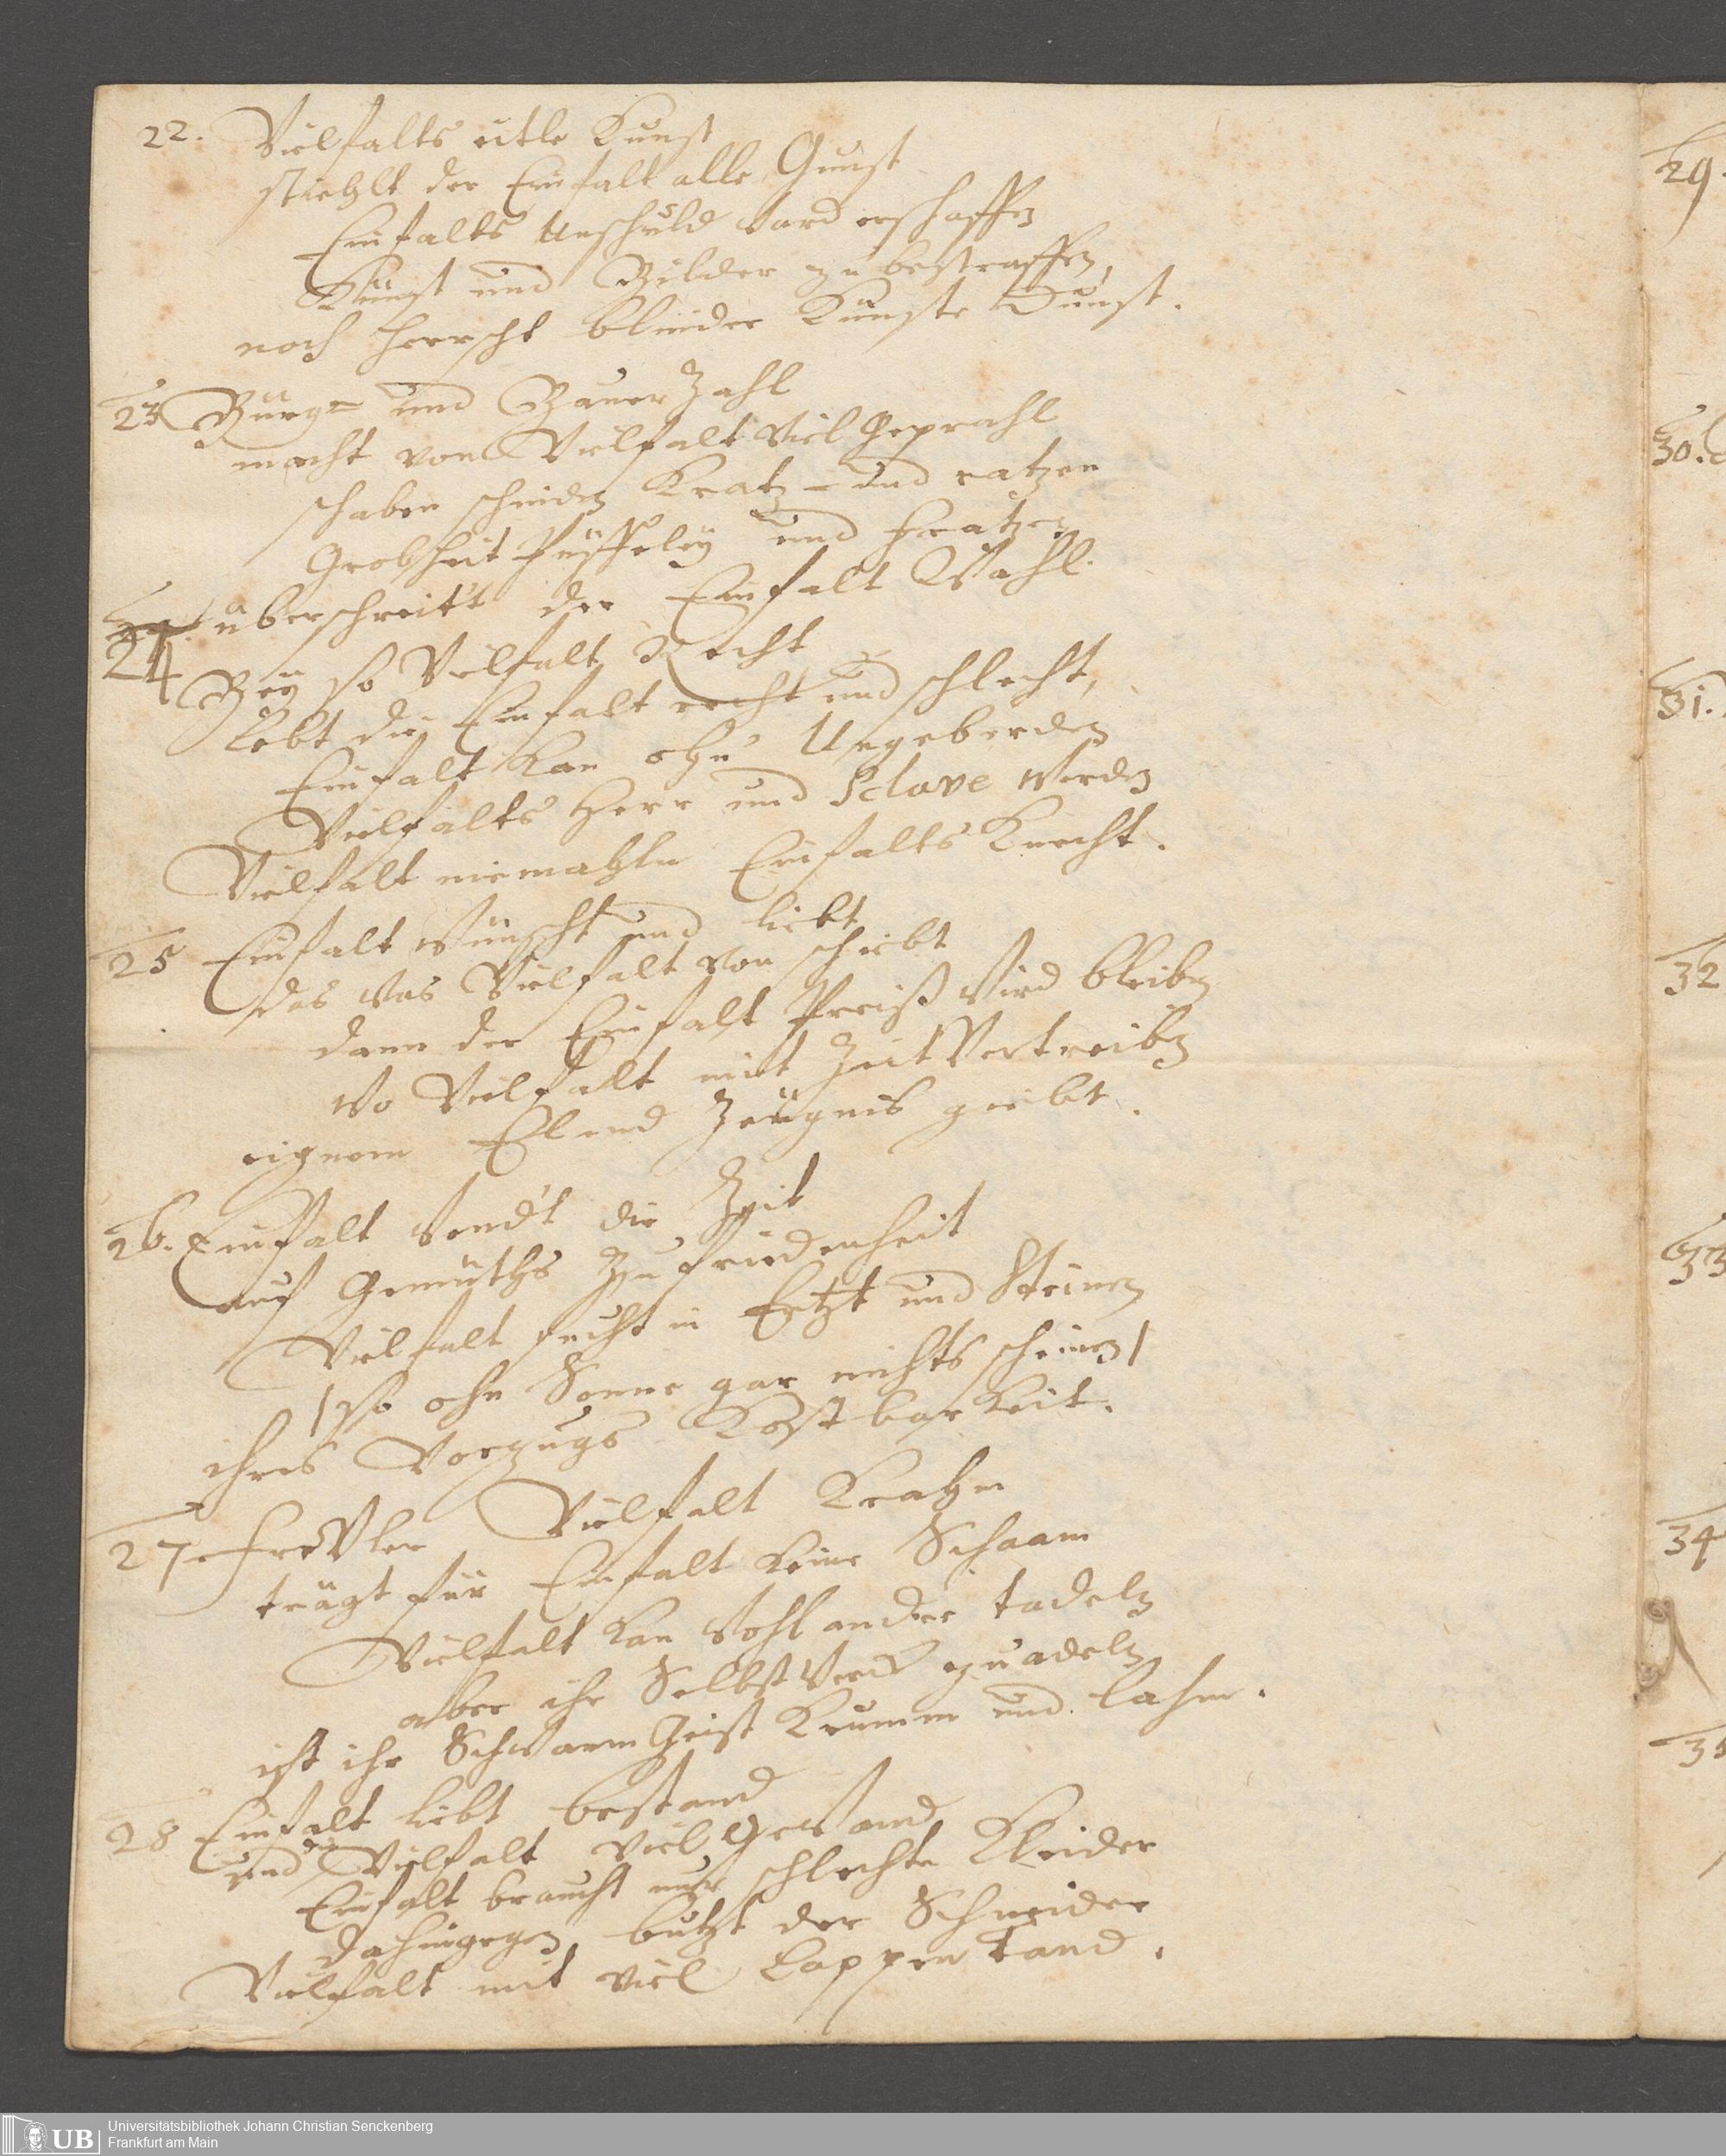 22. Vielfalts eitle Kunst
stiehlt der Einfalt alle Gunst
Einfalts Unschuld ward erschaffen
Kunst und Bilder zu bestraffen,
noch herrscht blinder Künste Dunst.
23 Bürg= und Bauer Zahl
macht von Vielfalt viel Geprahl
schaben schinden Kratz= und ratzen
Grobheit Püffeley und Fratzen
überschreit't der Einfalt Wahl.
24 Bey so Vielfalt Recht
Lebt die Einfalt recht und schlecht,
Einfalt kan ohn Ungeberden
Vielfalts Herr und Sclave werden
Vielfalt niemahln Einfalts Knecht.
25 Einfalt wünscht und liebt
das was Vielfalt von schiebt
dann der Einfalt Preiß wird bleiben
wo Vielfalt mit ZeitVertreiben
eignem Elend Zeugnis giebt.
26. Einfalt wend't die Zeit
auf Gemüths Zufriedenheit
Vielfalt sucht in Ertzt und Steinen
/so ohn Sonne gar nichts scheinen/
ihres Vorzugs Kostbarkeit.
27. Frevler Vielfalt Krahm
trägt für Einfalt keine Schaam
Vielfalt kan wohl andre tadeln
aber ihr SelbstWerck zu adeln
ist ihr SchwarmGeist Krumm und lahm.
28 Einfalt liebt bestand
und Vielfalt viel Gewand
Einfalt braucht nur schlechte Kleider
dahingegen butzt der Schneider
Vielfalt mit viel Lappen Tand.
29.
30.
31.
32
33
34
35
UB Universitätsbibliothek Johann Christian Senckenberg
Frankfurt am Main